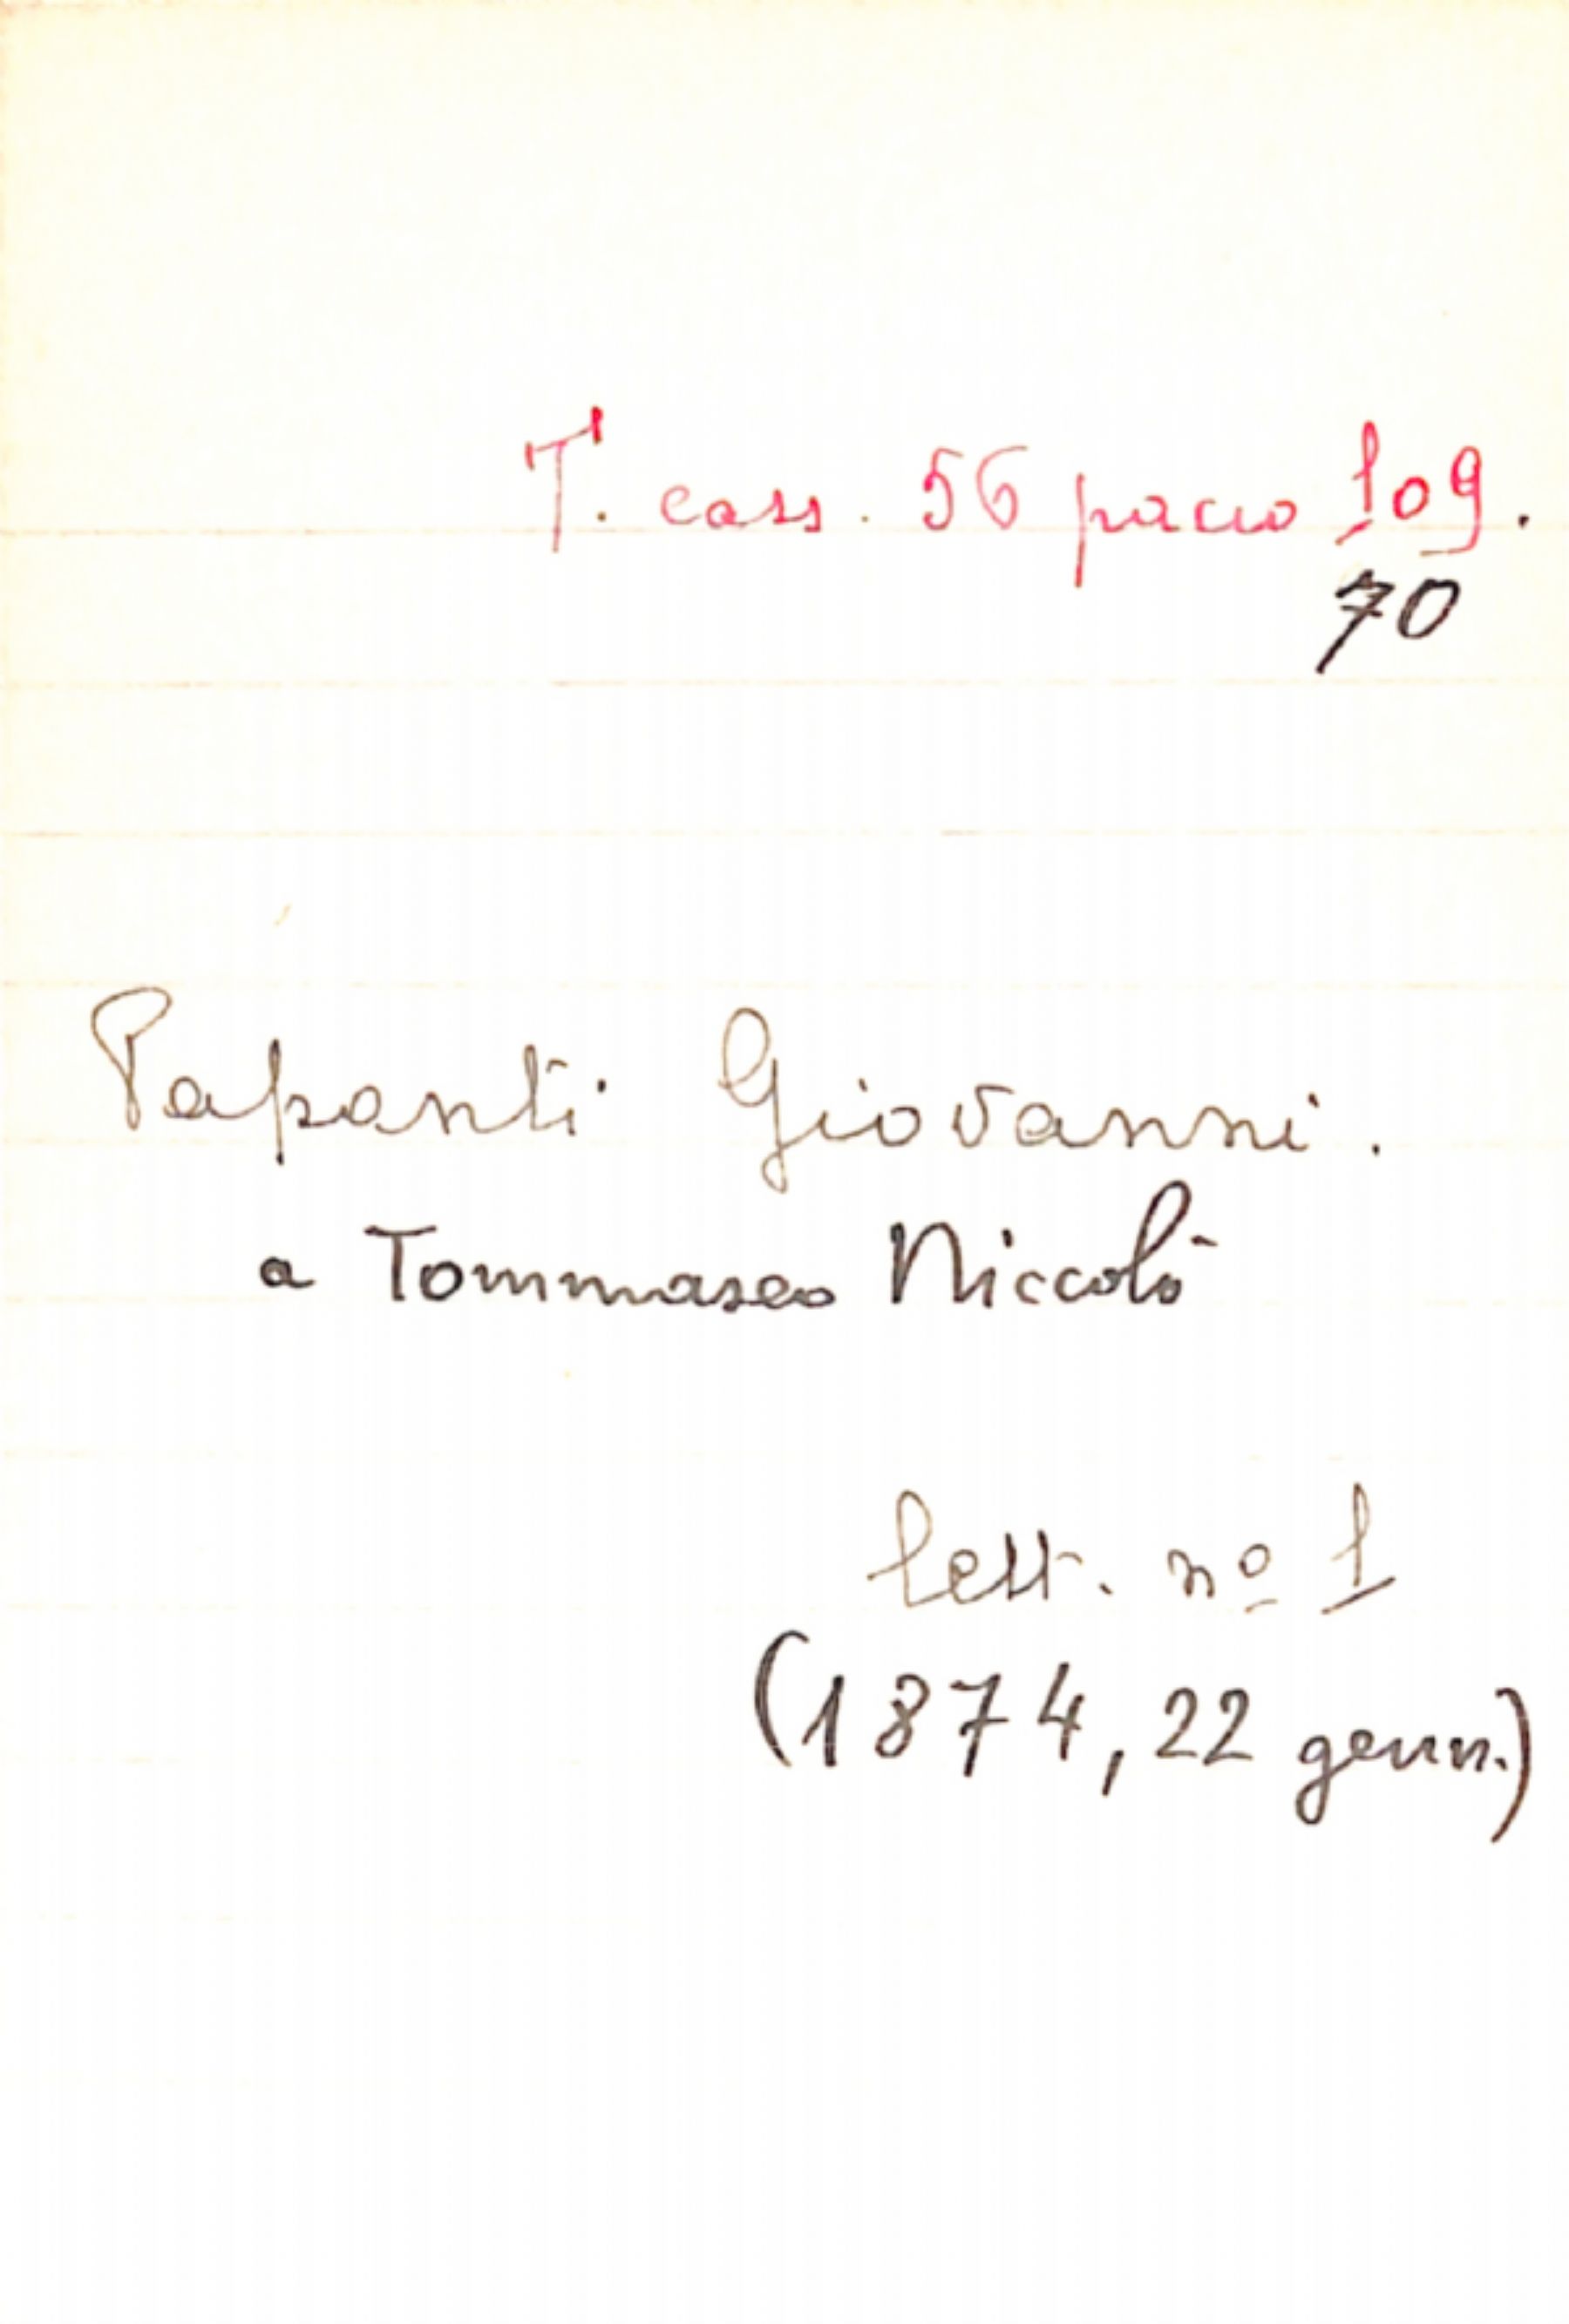 T. cass. 56 pacco 109.
70
Papanti Giovanni.
a Tommaseo Niccolò
lett. nº 1
(1874, 22 genn.)